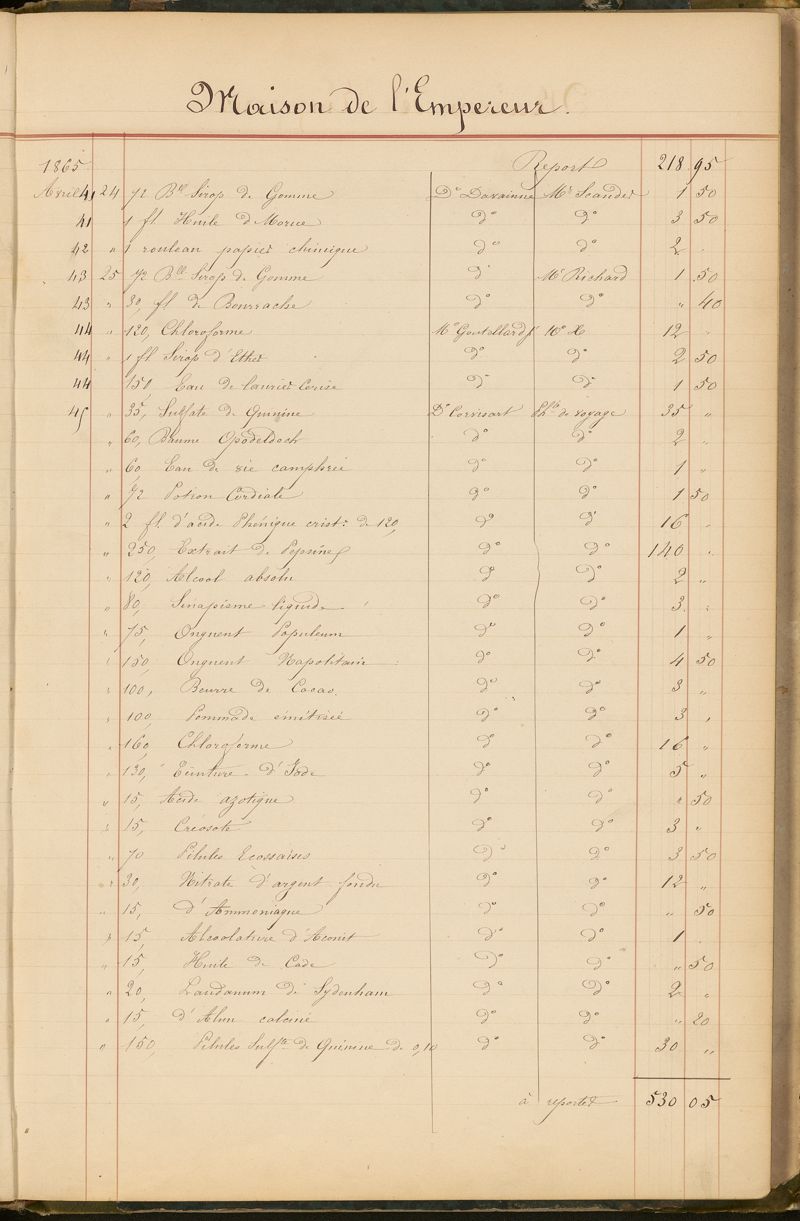 Maison de l'Empereur.
1865 Report 218 95
Avril 41 24 1/2 Bll Sirop de Gomme Dr Davainne Mr Scander 1 50
41 1 fl. Huile d Morue do do 3 50
42 " 1 rouleau papier chimique do do 2 .
43 25 1/2 Bll Sirop de Gomme do Mr Richard 1 50
43 " 30, fl de Bourrache do do " 40
44 " 120, Chloroforme 12 .
44 " 1 fl Sirop d'Ether do do 2 50
44 150 Eau de laurier Cerise do do 1 50
45 " 35, Sulfate de Quinine Dr Corvisart Phie de voyage 35 "
" 60, Baume Opodeldoch do do 2 "
" 60, Eau de vie camphrée do do 1 "
" 1/2 Potion Cordiale do do 1 50
" 2 fl. d'acide Phénique crist: de 120, do do 16 .
" 250, Extrait de Pepsine do do 140 .
" 120, Alcool absolu do do 2 "
" 80, Sinapisme liquide do do 3 .
" 75, Onguent Populeum do do 1 "
" 150, Onguent Napolitain do do 4 50
" 100, Beurre de Cacao. do do 3 "
" 100, Pommade émétisée do do 3 "
" 160, Chloroforme do do 16 "
" 130, Teinture d'Iode do do 5 "
" 15, Acide azotique do do " 50
" 15, Créosote do do 3 "
" 70 Pilules Ecossaises do do 3 50
" 30, Nitrate d'argent fondu do do 12 "
" 15, d'Ammoniaque do do " 50
" 15, Alcoolature d'Aconit do do 1 .
" 15, Huile de Cade do do " 50
" 20, Laudanum de Sydenham do do 2 "
" 15, d'Alun calciné do do " 20
" 150 Pilules Sulfte de Quinine de 0,10 do do 30 "
à reporter 530 05